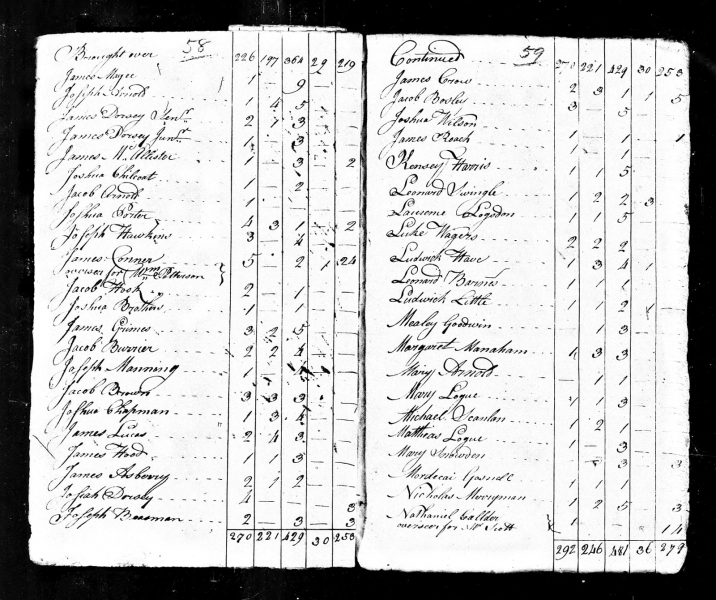 58
Brought over 226 197 364 29 219
James Mager 1 — 9 — —
Joseph Arnold 1 4 5 — —
James Dorsey Senr. 2 1 3 — —
James Dorsey Junr. 1 — 3 — —
James McAllister 1 — 3 — 2
Joshua Chilcoat 1 — 2 — —
Jacob Arnold
Joshua Porter 4 3 1 — 2
Joseph Hawkins 3 — 4 — —
James Corner 5 — 2 1 24
overseer for Wm. Patterson
Jacob Hook 2 — 1 — —
Joshua Brothers 1 — 1 — —
James Grimes 3 2 5 — —
Jacob Burrier 2 2 4 — —
Joseph Manning 1 — 4 — —
Jacob Brown 3 3 3 — —
Joshua Chapman 1 3 4 — —
James Lucas 2 4 3 — —
James Hood 1 1 3 — —
James Asberry 2 1 2 — —
Josiah Dorsey 4 — — — 3
Joseph Beasman 2 — 3 — 3
270 221 429 30 253
59
Continued 270 221 429 30 253
James Crow 2 3 1 1 5
Jacob Bosley 3 — 5 — —
Joshua Wilson 1 — 1 — —
James Roach 1 — 1 — 1
Kensey Harris 1 1 5 — —
Leonard Swingle 1 2 2 3 —
Laurence Logsdon 1 1 5 — —
Luke Wagers 2 2 2 — —
Ludwick Have 1 3 4 1 —
Leonard Barnes 1 1 1 — —
Ludwick Little 1 1 2 — —
Mealey Goodwin 1 1 3 — —
Margaret Manaham 1 3 3 — —
Mary Arnold — 1 1 — —
Mary Logue 1 1 3 — —
Michael Scanlan 1 2 1 — —
Matthias Logue — — 3 — —
Mary Snowden — — 3 — 3
Mordecai Gosnell 1 1 1 — —
Nicholas Merryman 1 2 5 — 3
Nathaniel Callder 1 — — — 14
overseer for Mr. Scott
292 246 481 36 279